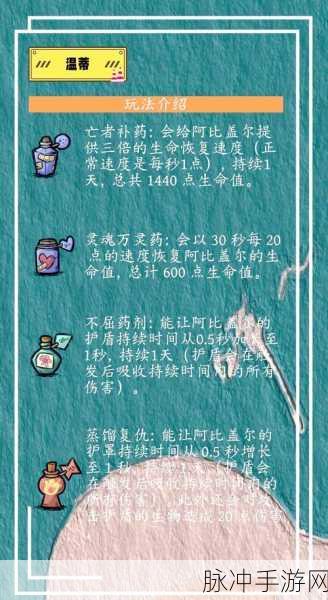 温蒂
玩法介绍
亡者补药: 会给阿比盖尔提
供三倍的生命恢复速度 (正
常速度是每秒1点) , 持续1
天, 总共 1440 点生命值。
灵魂万灵药: 会以 30 秒每 20
点的速度恢复阿比盖尔的生
命值, 总计 600 点生命值。
不屈药剂: 能让阿比盖尔的
护盾持续时间从0.5秒加长至
1秒, 持续1天 (护盾会在触
发后吸收持续时间内的所有
伤害) 。
蒸馏复仇: 能让阿比盖尔的
护罩持续时间从 0.5 秒增长
至 1 秒, 持续 1 天 (护盾会
在触发后吸收持续时间内的
所有伤害) , 此外还会对攻
击护盾的生物造成 20 点伤害
脉冲手游网